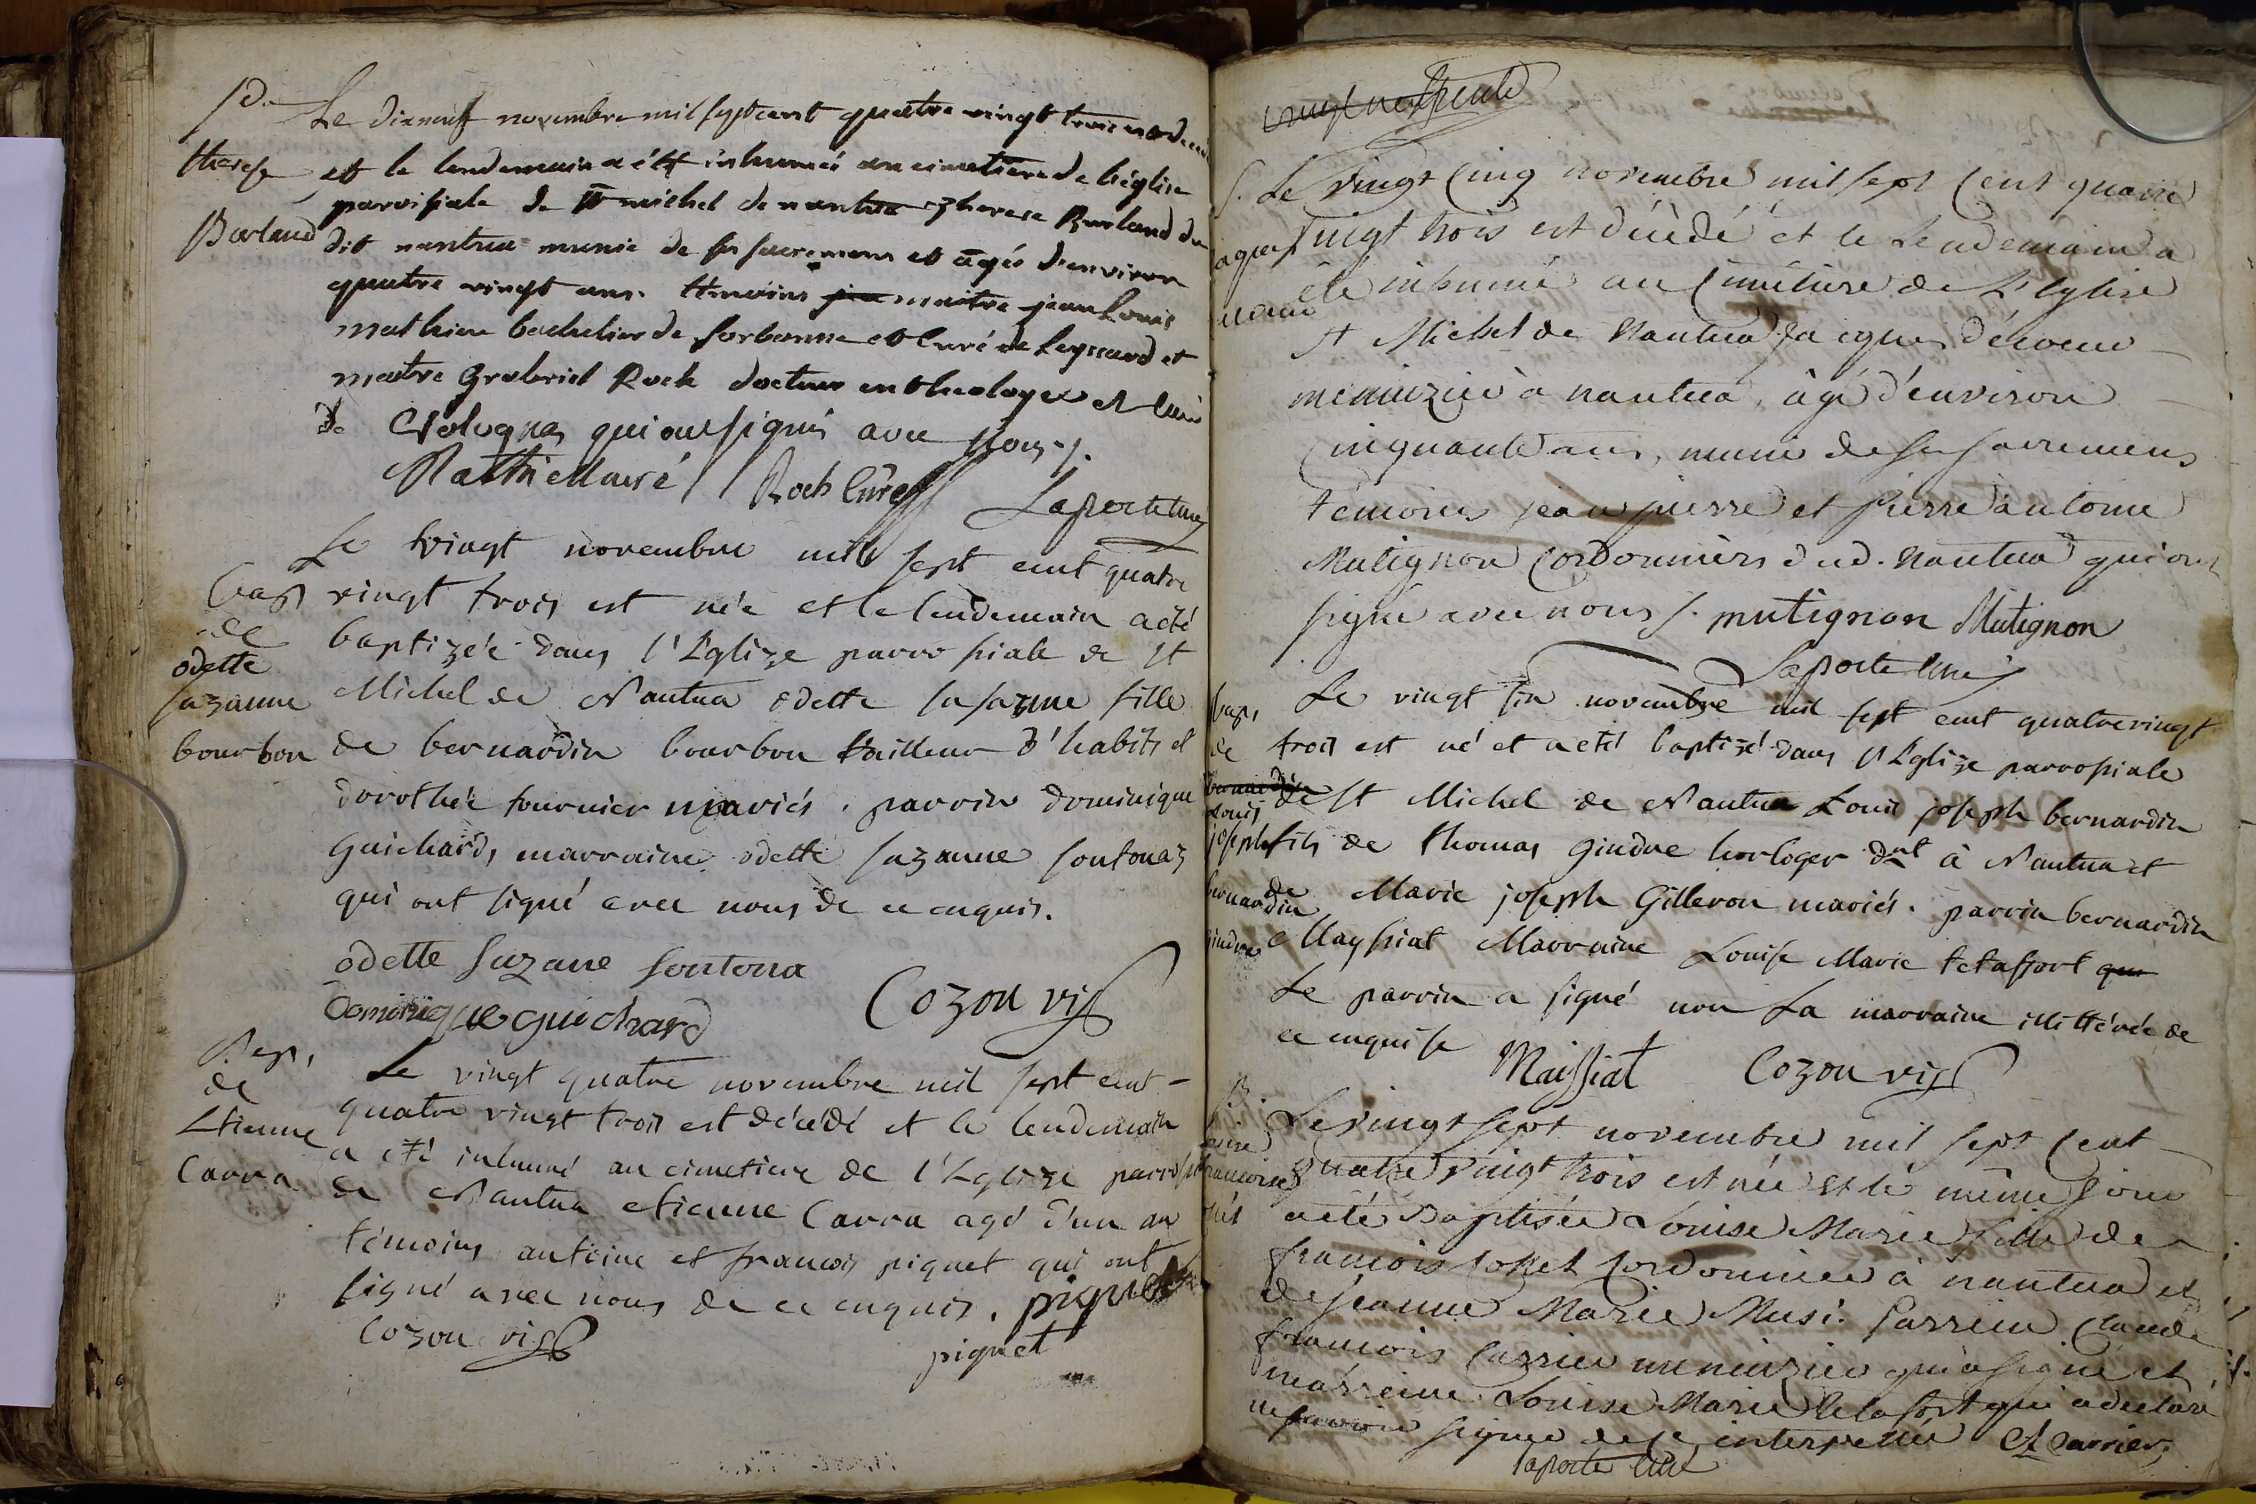 Sd.
therese
Borland
Le dixneuf novembre mil sept cent quatre vingt trois
et le lendemain a été inhumée au cimetiere de l'église
paroissiale de st michel de nantua therese Borland du
dit nantua munie de ses sacremens et agée d'environ
quatre vingt ans. temoins maitre jean Louis
mathieu bachelier de sorbonne et curé de Leyssard et
maitre Gabriel Roch docteur en theologye et curé
de Vologna qui ont signés avec nous.
Mathieu curé Roch curé Laporte curé
bap
de
odette
suzanne
bourbon
Le vingt novembre mil sept cent quatre
vingt trois est née et le lendemain a eté
baptizée dans l'Eglize parrossiale de St
Michel de Nantua odette susazme fille
de bernardin bourbon tailleur d'habits et
dorothée fournier mariés. parrin dominique
Guichard, marraine odette suzanne sontonaz
qui ont signé avec nous de ce enquis.
odette suzane sontona
dominique guichard Cozon vis
Sep,
de
Etienne
Carra
Le vingt quatre novembre mil sept cent
quatre vingt trois est décédé et le lendemain
a eté inhumé au cimetiere de l'Eglize parross
de Nantua etienne Carra agé d'un an
témoins antoine et francois piquet qui ont
signé avec nous de ce enquis. piquet
Cozon vis piquet
S.
aques
Le vingt cinq novembre mil sept cent quatre
vingt trois est décédé et le Lendemain a
été inhumé au cimetiere de L'Eglise
St Michel de Nantua jacques
menuzier à nantua, âgé d'environ
cinquante ans, muni de ses sacremens
témoins jean pierre et pierre antoine
Mutignon cordonniers dud. Nantua qui ont
signé avec nous. mutignon Mutignon
Laporte curé
bap,
de
Louis
joseph
bernardin
gindre
Le vingt six novembre mil sept cent quatrevingt
trois est né et a eté baptizé dans l'Eglize parrossiale
de St Michel de Nantua Louis joseph bernardin
fils de thomas gindre horloger dnt à Nantua et
de Marie joseph Gilleron mariés. parrin bernardin
Mayssiat Marraine Louise Marie tetafort qui
Le parrin a signé non La marraine illittérée de
ce enquise Maissiat Cozon vis
B.
Le vingt sept novembre mil sept cent
quatre vingt trois est née et le même jour
a été Baptisée Louise Marie fille de
francois cordonnier à nantua et
de jeanne Marie Musi. Parrein Claude
francois Carrier menuzier qui a signé et
marreine Louise Marie tetafort qui a declaré
ne signer de ce interpellée Cf Carrier,
Laporte curé